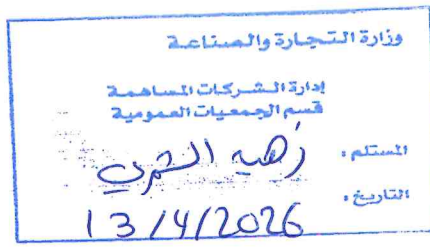 وزارة التجارة والصناعة
إدارة الشركات المساهمة
قسم الجمعيات العمومية
المستلم :
التاريخ : 13/4/2026